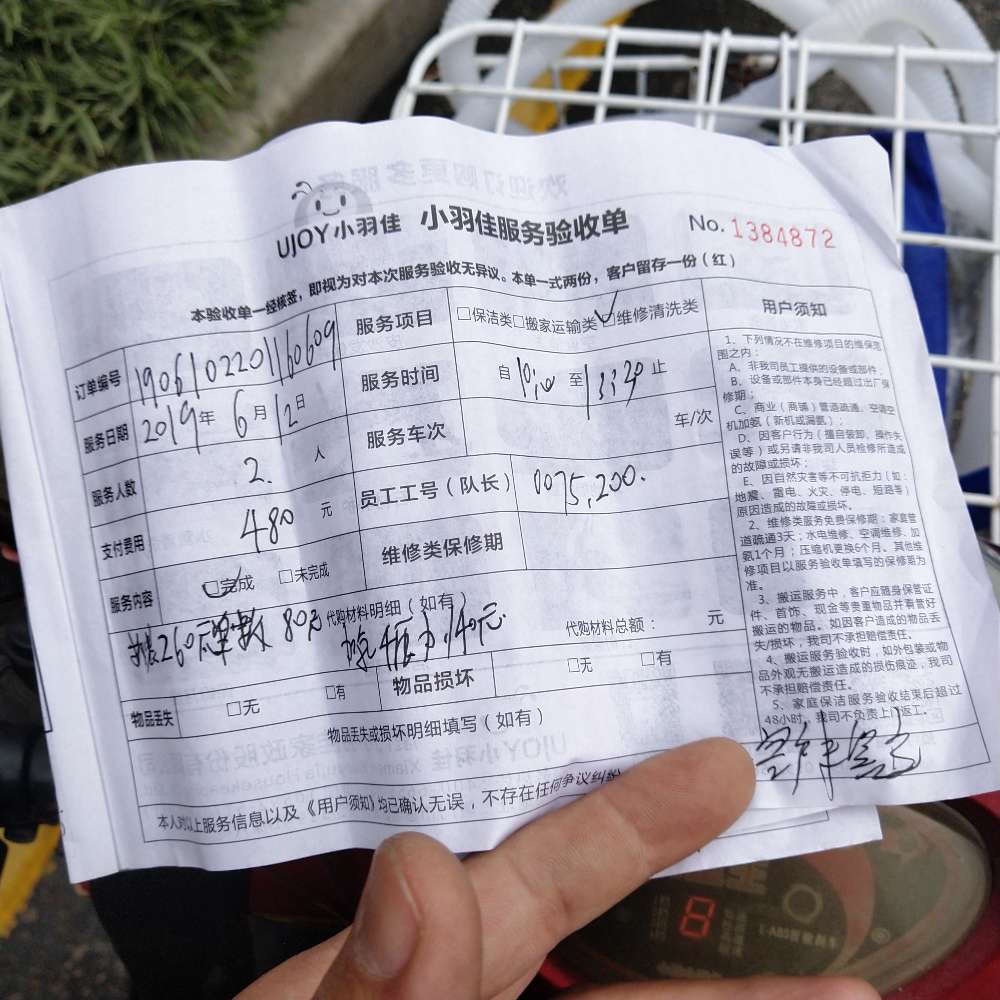 UJOY小羽佳 小羽佳服务验收单 No. 1384872
本验收单一经核签，即视为对本次服务验收无异议。本单一式两份，客户留存一份（红）
订单编号 1906102201160609 服务项目 □保洁类□搬家运输类□维修清洗类
服务日期 2019年6月12日 服务时间 自10:10至13:30止
服务人数 2. 人 服务车次 车/次
支付费用 480 元 员工工号（队长） 0075,200.
服务内容 □完成 □未完成 维修类保修期
260元 80元 代购材料明细（如有） 140元. 代购材料总额： 元
物品丢失 □无 □有 物品损坏 □无 □有
物品丢失或损坏明细填写（如有）
本人对以上服务信息以及《用户须知》均已确认无误，不存在任何争议纠纷
用户须知
1、下列情况不在维修项目的维保范
围之内：
A、非我司员工提供的设备或部件；
B、设备或部件本身已经超过出厂保
修期；
C、商业（商铺）管道疏通、空调空
机加氨（新机或漏氨）；
D、因客户行为（擅自装卸、操作失
误等）或另请非我司人员检修所造成
的故障或损坏；
E、因自然灾害等不可抗拒力（如：
地震、雷电、火灾、停电、短路等）
原因造成的故障或损坏。
2、维修类服务免费保修期：家庭管
道疏通3天；水电维修、空调维修、加
氨1个月；压缩机更换6个月。其他维
修项目以服务验收单填写的保修期为
准。
3、搬运服务中，客户应随身保管证
件、首饰、现金等贵重物品并看管好
搬运的物品。如因客户造成的物品丢
失/损坏，我司不承担赔偿责任。
4、搬运服务验收时，如外包装或物
品外观无搬运造成的损伤痕迹，我司
不承担赔偿责任。
5、家庭保洁服务验收结束后超过
48小时，我司不负责上门返工。